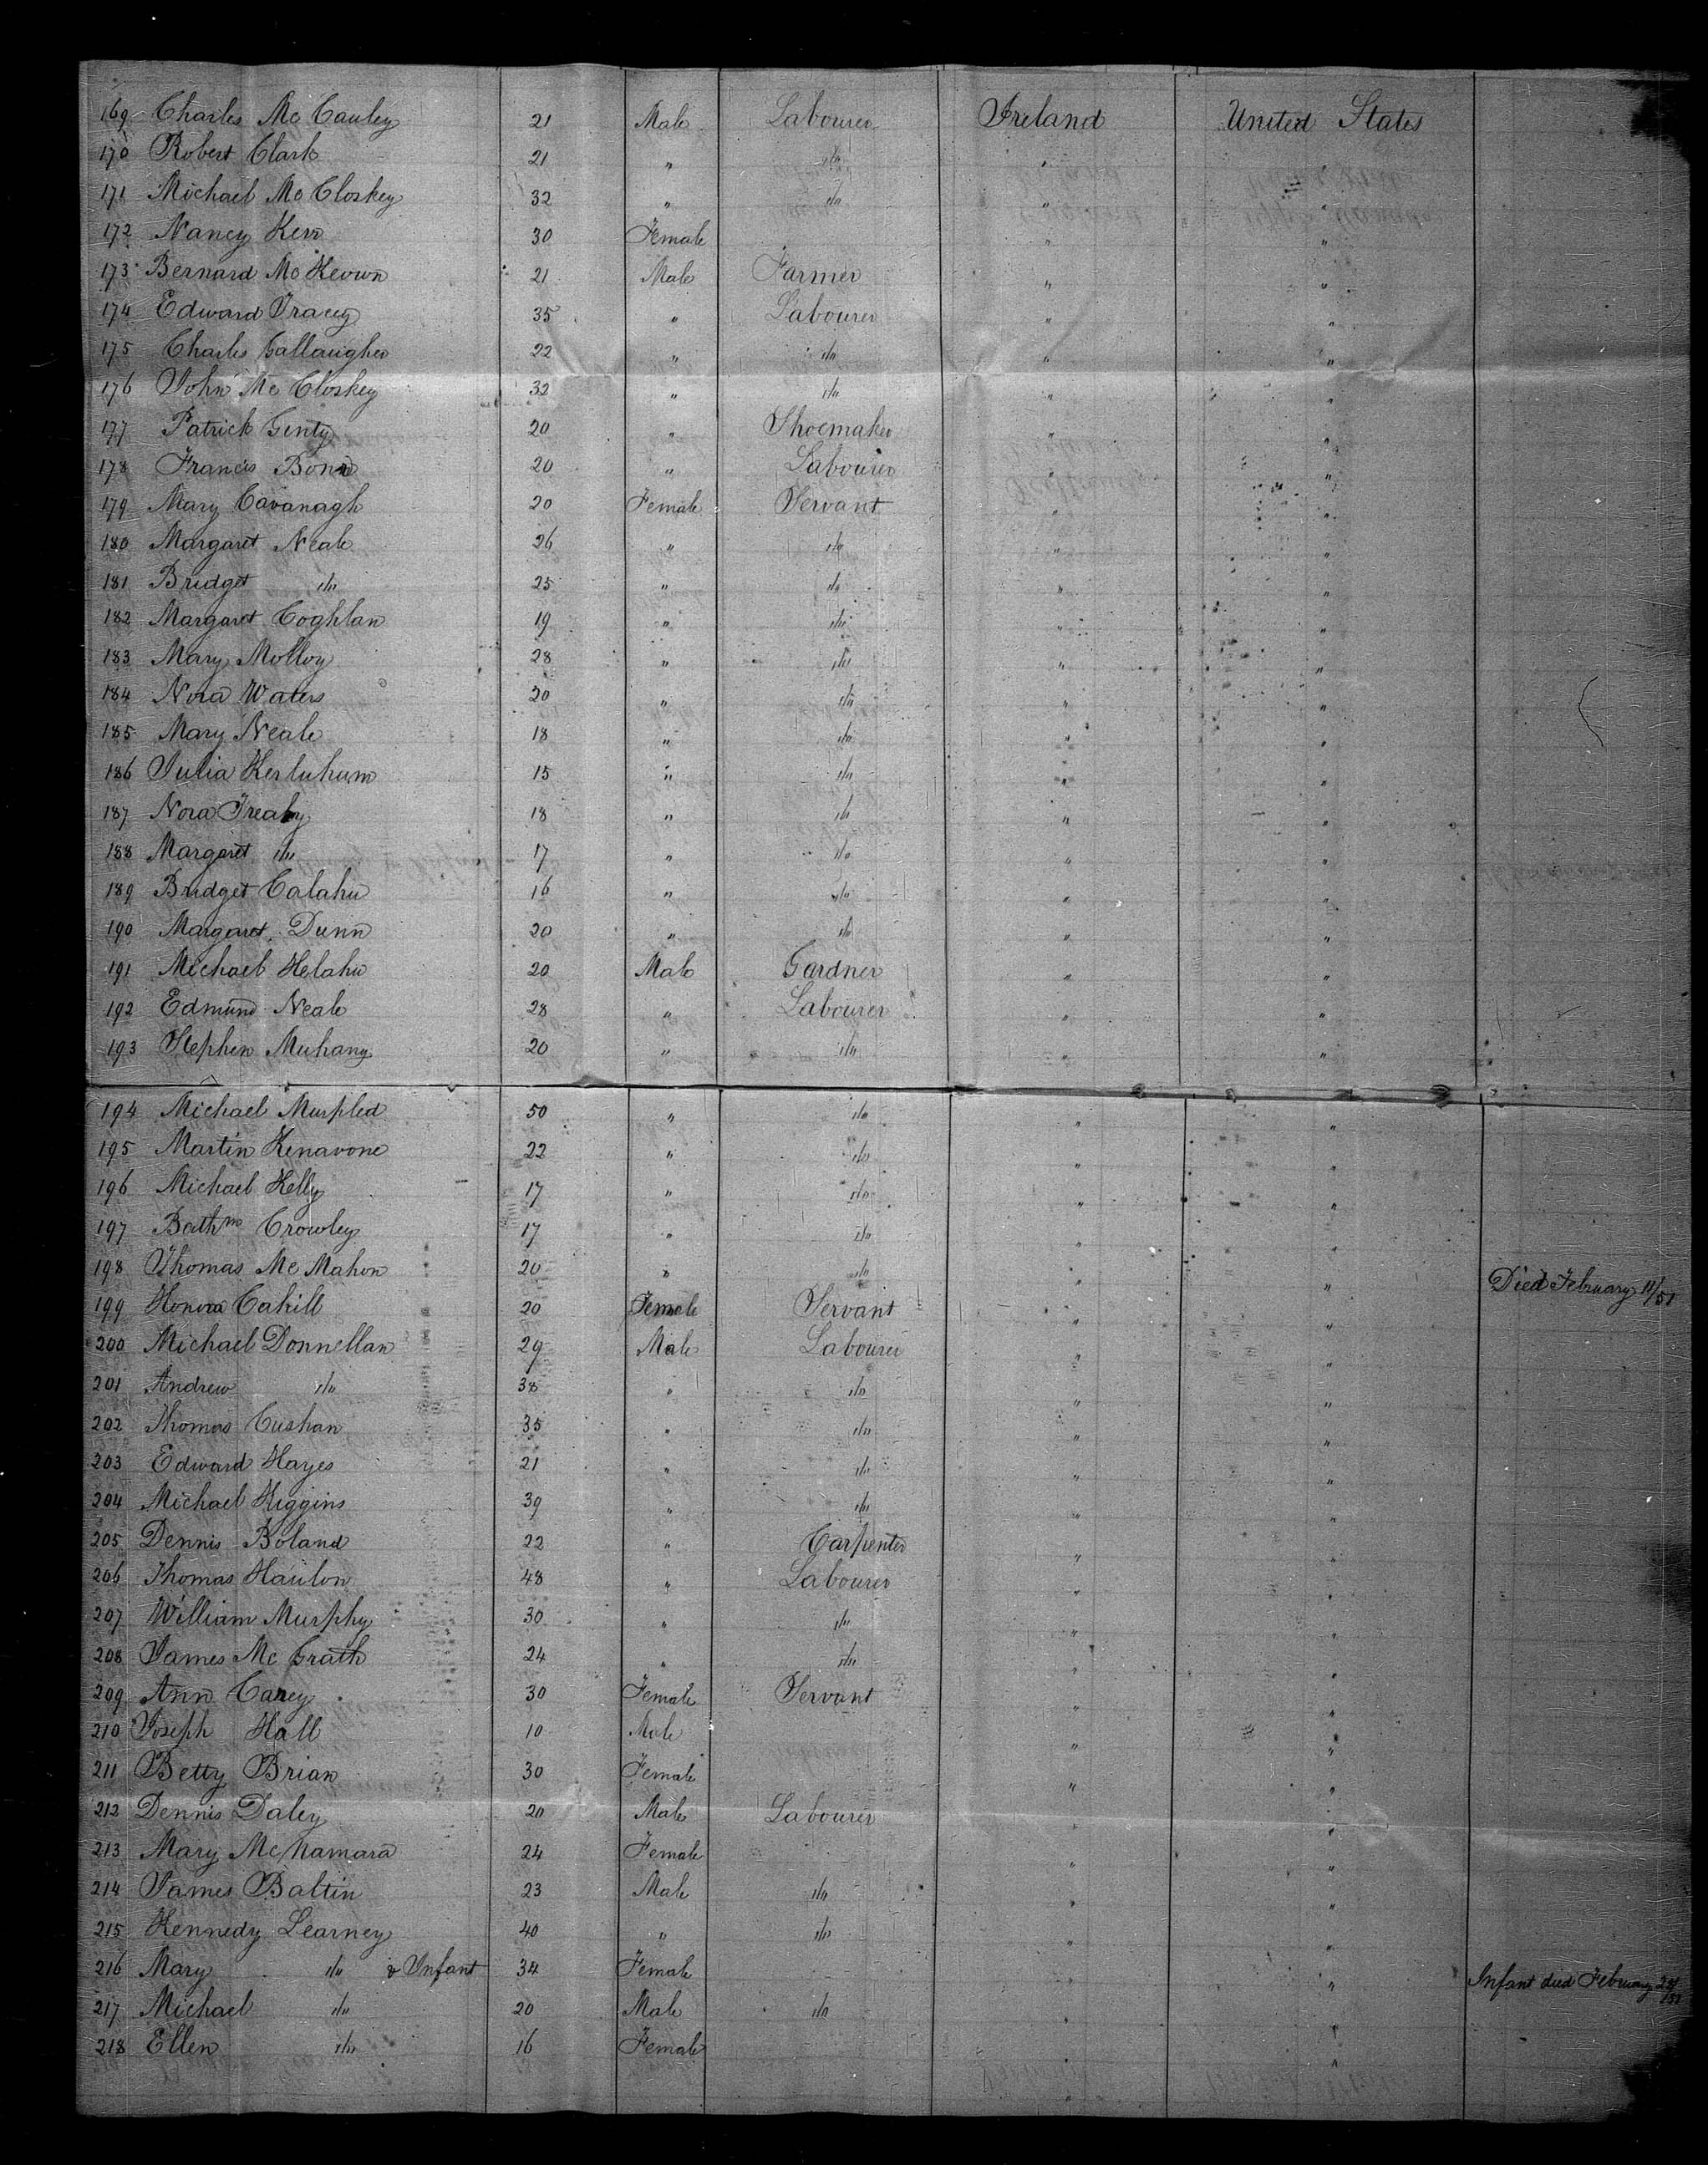 169 Charles Mc Cauley 21 Male Labourer Ireland United States
170 Robert Clark 21 " do " "
171 Michael Mc Closkey 32 " do " "
172 Nancy Kerr 30 Female " "
173 Bernard Mc Keown 21 Male Farmer " "
174 Edward Tracey 35 " Labourer " "
175 Charles Gallaugher 22 " do " "
176 John Mc Closkey 32 " do " "
177 Patrick Genty 20 " Shoemaker " "
178 Francis Bond 20 " Labourer " "
179 Mary Cavanagh 20 Female Servant " "
180 Margaret Neale 26 " do " "
181 Bridget do 25 " do " "
182 Margaret Coghlan 19 " do " "
183 Mary Molloy 28 " do " "
184 Nora Waters 20 " do " "
185 Mary Neale 18 " do " "
186 Julia 15 " do " "
187 Nora Treahy 18 " do " "
188 Margaret do 17 " do " "
189 Bridget Calahu 16 " do " "
190 Margaret Dunn 20 " do " "
191 Michael Helahu 20 Male Gardner " "
192 Edmund Neale 28 " Labourer " "
193 Stephen Muhany 20 " do " "
194 Michael Murpled 50 " do " "
195 Martin Kenavone 22 " do " "
196 Michael Kelly 17 " do " "
197 Bathm Crowley 17 " do " "
198 Thomas Mc Mahon 20 " do " " Died February 11/51
199 Honora Cahill 20 Female Servant " "
200 Michael Donnellan 29 Male Labourer " "
201 Andrew do 38 " do " "
202 Thomas Cushan 35 " do " "
203 Edward Hayes 21 " do " "
204 Michael Higgins 39 " do " "
205 Dennis Boland 22 " Carpenter " "
206 Thomas Haulon 48 " Labourer " "
207 William Murphy 30 " do " "
208 James Mc Grath 24 " do " "
209 Ann Carey 30 Female Servant " "
210 Joseph Hall 10 Male " "
211 Betty Brian 30 Female " "
212 Dennis Daley 20 Male Labourer " "
213 Mary McNamara 24 Female " "
214 James Baltin 23 Male do " "
215 Kennedy Learney 40 " do " "
216 Mary do & Infant 34 Female " " Infant died February
217 Michael do 20 Male do " "
218 Ellen do 16 Female " "